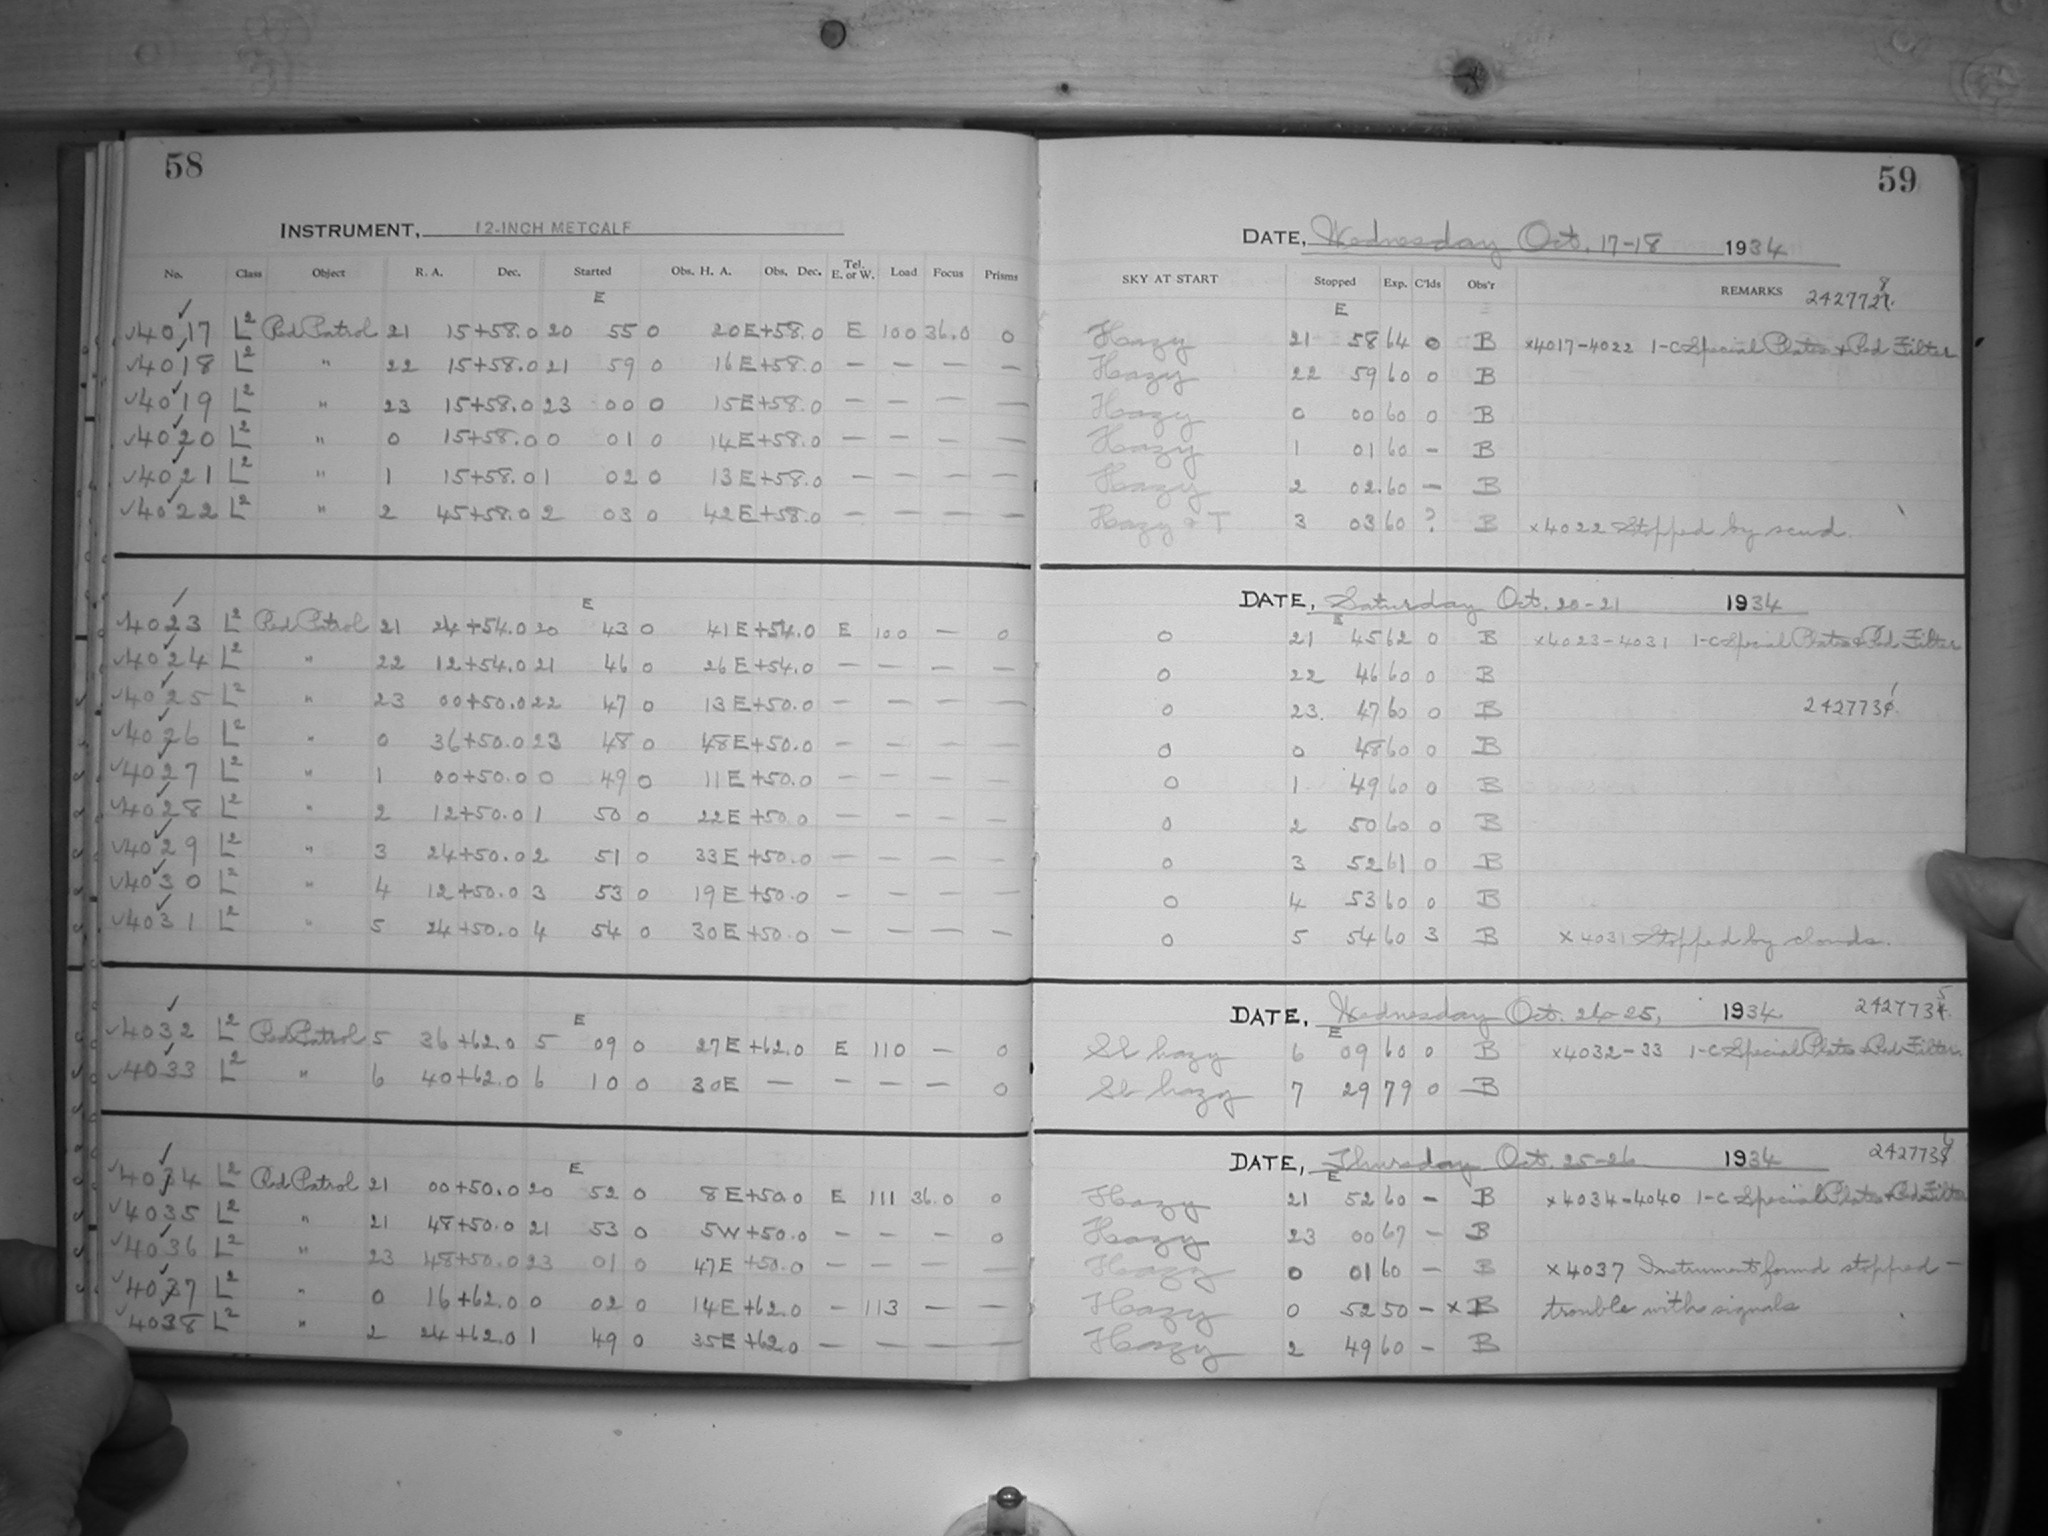 58
INSTRUMENT, 12-INCH METCALF
No. Class Object R. A. Dec. Started Obs. H. A. Obs. Dec. Tel. E. or W. Load Focus Prisms
E
√4017 L² Red Patrol 21 15 +58.0 20 55 0 20E +58.0 E 100 36.0 0
√4018 L² " 22 15 +58.0 21 59 0 16E +58.0 — — — —
√4019 L² " 23 15 +58.0 23 00 0 15E +58.0 — — — —
√4020 L² " 0 15 +58.0 0 01 0 14E +58.0 — — — —
√4021 L² " 1 15 +58.0 1 02 0 13E +58.0 — — — —
√4022 L² " 2 45 +58.0 2 03 0 42E +58.0 — — — —
E
√4023 L² Red Patrol 21 24 +54.0 20 43 0 41E +54.0 E 100 — 0
√4024 L² " 22 12 +54.0 21 46 0 26E +54.0 — — — —
√4025 L² " 23 00 +50.0 22 47 0 13E +50.0 — — — —
√4026 L² " 0 36 +50.0 23 48 0 48E +50.0 — — — —
√4027 L² " 1 00 +50.0 0 49 0 11E +50.0 — — — —
√4028 L² " 2 12 +50.0 1 50 0 22E +50.0 — — — —
√4029 L² " 3 24 +50.0 2 51 0 33E +50.0 — — — —
√4030 L² " 4 12 +50.0 3 53 0 19E +50.0 — — — —
√4031 L² " 5 24 +50.0 4 54 0 30E +50.0 — — — —
E
√4032 L² Red Patrol 5 36 +62.0 5 09 0 27E +62.0 E 110 — 0
√4033 L² " 6 40 +62.0 6 10 0 30E — — — — 0
E
√4034 L² Red Patrol 21 00 +50.0 20 52 0 8E +50.0 E 111 36.0 0
√4035 L² " 21 48 +50.0 21 53 0 5W +50.0 — — — 0
√4036 L² " 23 48 +50.0 23 01 0 47E +50.0 — — — —
√4037 L² " 0 16 +62.0 0 02 0 14E +62.0 — 113 — —
√4038 L² " 2 24 +62.0 1 49 0 35E +62.0 — — — —
59
DATE, Wednesday Oct. 17-18 1934
SKY AT START Stopped Exp. C'lds Obs'r REMARKS 2427728.
E
Hazy 21 58 64 0 B ×4017-4022 1-C Special Plates & Red Filter
Hazy 22 59 60 0 B
Hazy 0 00 60 0 B
Hazy 1 01 60 — B
Hazy 2 02 60 — B
Hazy & T 3 03 60 ? B ×4022 Stopped by scud.
DATE, Saturday Oct. 20-21 1934
E
0 21 45 62 0 B ×4023-4031 1-C Special Plates & Red Filter
0 22 46 60 0 B
0 23 47 60 0 B 2427731.
0 0 48 60 0 B
0 1 49 60 0 B
0 2 50 60 0 B
0 3 52 61 0 B
0 4 53 60 0 B
0 5 54 60 3 B ×4031 Stopped by clouds.
DATE, Wednesday Oct. 24-25, 1934 2427735.
E
Sl hazy 6 09 60 0 B ×4032-33 1-C Special Plates & Red Filter
Sl hazy 7 29 79 0 B
DATE, Thursday Oct. 25-26 1934 2427736
E
Hazy 21 52 60 — B ×4034-4040 1-C Special Plates & Red Filter
Hazy 23 00 67 — B
Hazy 0 01 60 — B ×4037 Instrument found stopped —
Hazy 0 52 50 — ×B trouble with signals
Hazy 2 49 60 — B